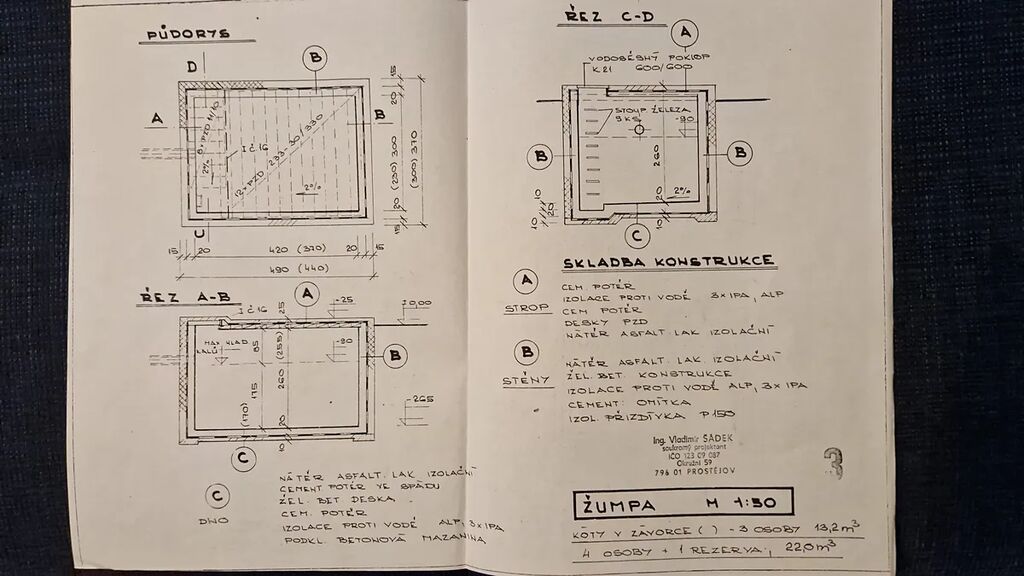 PŮDORYS
D
B
A
B
6x PZD M/10
2%
I č 16
12x PZD 233-30/330
2%
15
20
(230) 300
(300) 370
20
15
15
20
420 (370)
20
15
490 (440)
ŘEZ A-B
A
I č 16
25
-25
±0,00
MAX HLAD.
KALŮ
85
(255)
260
-90
B
175
(170)
20
10
-265
C
C
DNO
NÁTĚR ASFALT. LAK IZOLAČNÍ
CEMENT POTĚR VE SPÁDU
ŽEL. BET DESKA
CEM. POTĚR
IZOLACE PROTI VODĚ ALP, 3x IPA
PODKL. BETONOVÁ MAZANINA
ŘEZ C-D
A
VODOĚSNÝ POKLOP
K 21 600/600
STOUP ŽELEZA
9 KS
-90
B
B
260
10
20
10
20
2%
10
C
SKLADBA KONSTRUKCE
A
STROP
CEM. POTĚR
IZOLACE PROTI VODĚ 3x IPA, ALP
CEM POTĚR
DESKY PZD
NÁTĚR ASFALT. LAK IZOLAČNÍ
B
STĚNY
NÁTĚR ASFALT. LAK. IZOLAČNÍ
ŽEL. BET. KONSTRUKCE
IZOLACE PROTI VODĚ ALP, 3x IPA
CEMENT. OMÍTKA
IZOL. PŘIZDÍVKA P 150
Ing. Vladimír SADEK
soukromý projektant
IČO 123 09 087
Okružní 59
796 01 PROSTĚJOV
3
ŽUMPA M 1:50
KÓTY V ZÁVORCE ( ) - 3 OSOBY 13,2 m³
4 OSOBY + 1 REZERVA, 22,0 m³